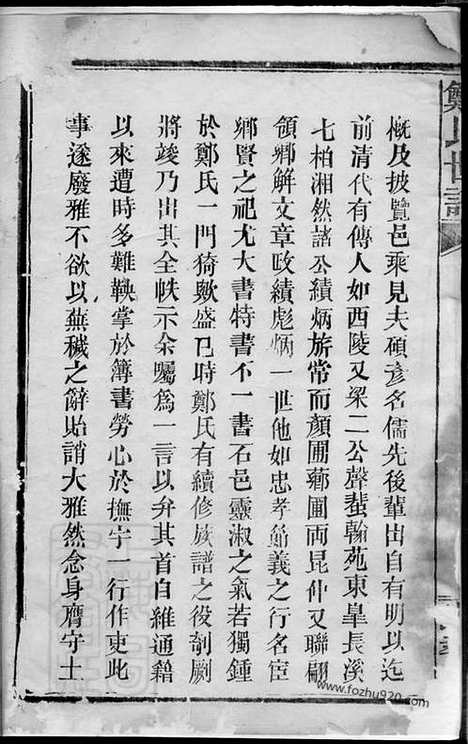 概及披覽邑乘見夫碩彥名儒先後輩出自有明以迄
前清代有傳人如西陵又梁二公聲蜚翰苑東臯長溪
七柏湘然諸公績炳旂常而顏圃薌圃両昆仲又聯翩
領鄉解文章政績彪炳一世他如忠孝節義之行名宦
鄉賢之祀尤大書特書不一書石邑靈淑之氣若獨鍾
於鄭氏一門猗歟盛已時鄭氏有續修族譜之役剞劂
將竣乃出其全帙示余囑爲一言以弁其首自維通籍
以來遭時多難鞅掌於簿書勞心於撫字一行作吏此
事遂廢雅不欲以蕪穢之辭貽誚大雅然念身膺守土
鄭氏世譜
www.fozhu920.com